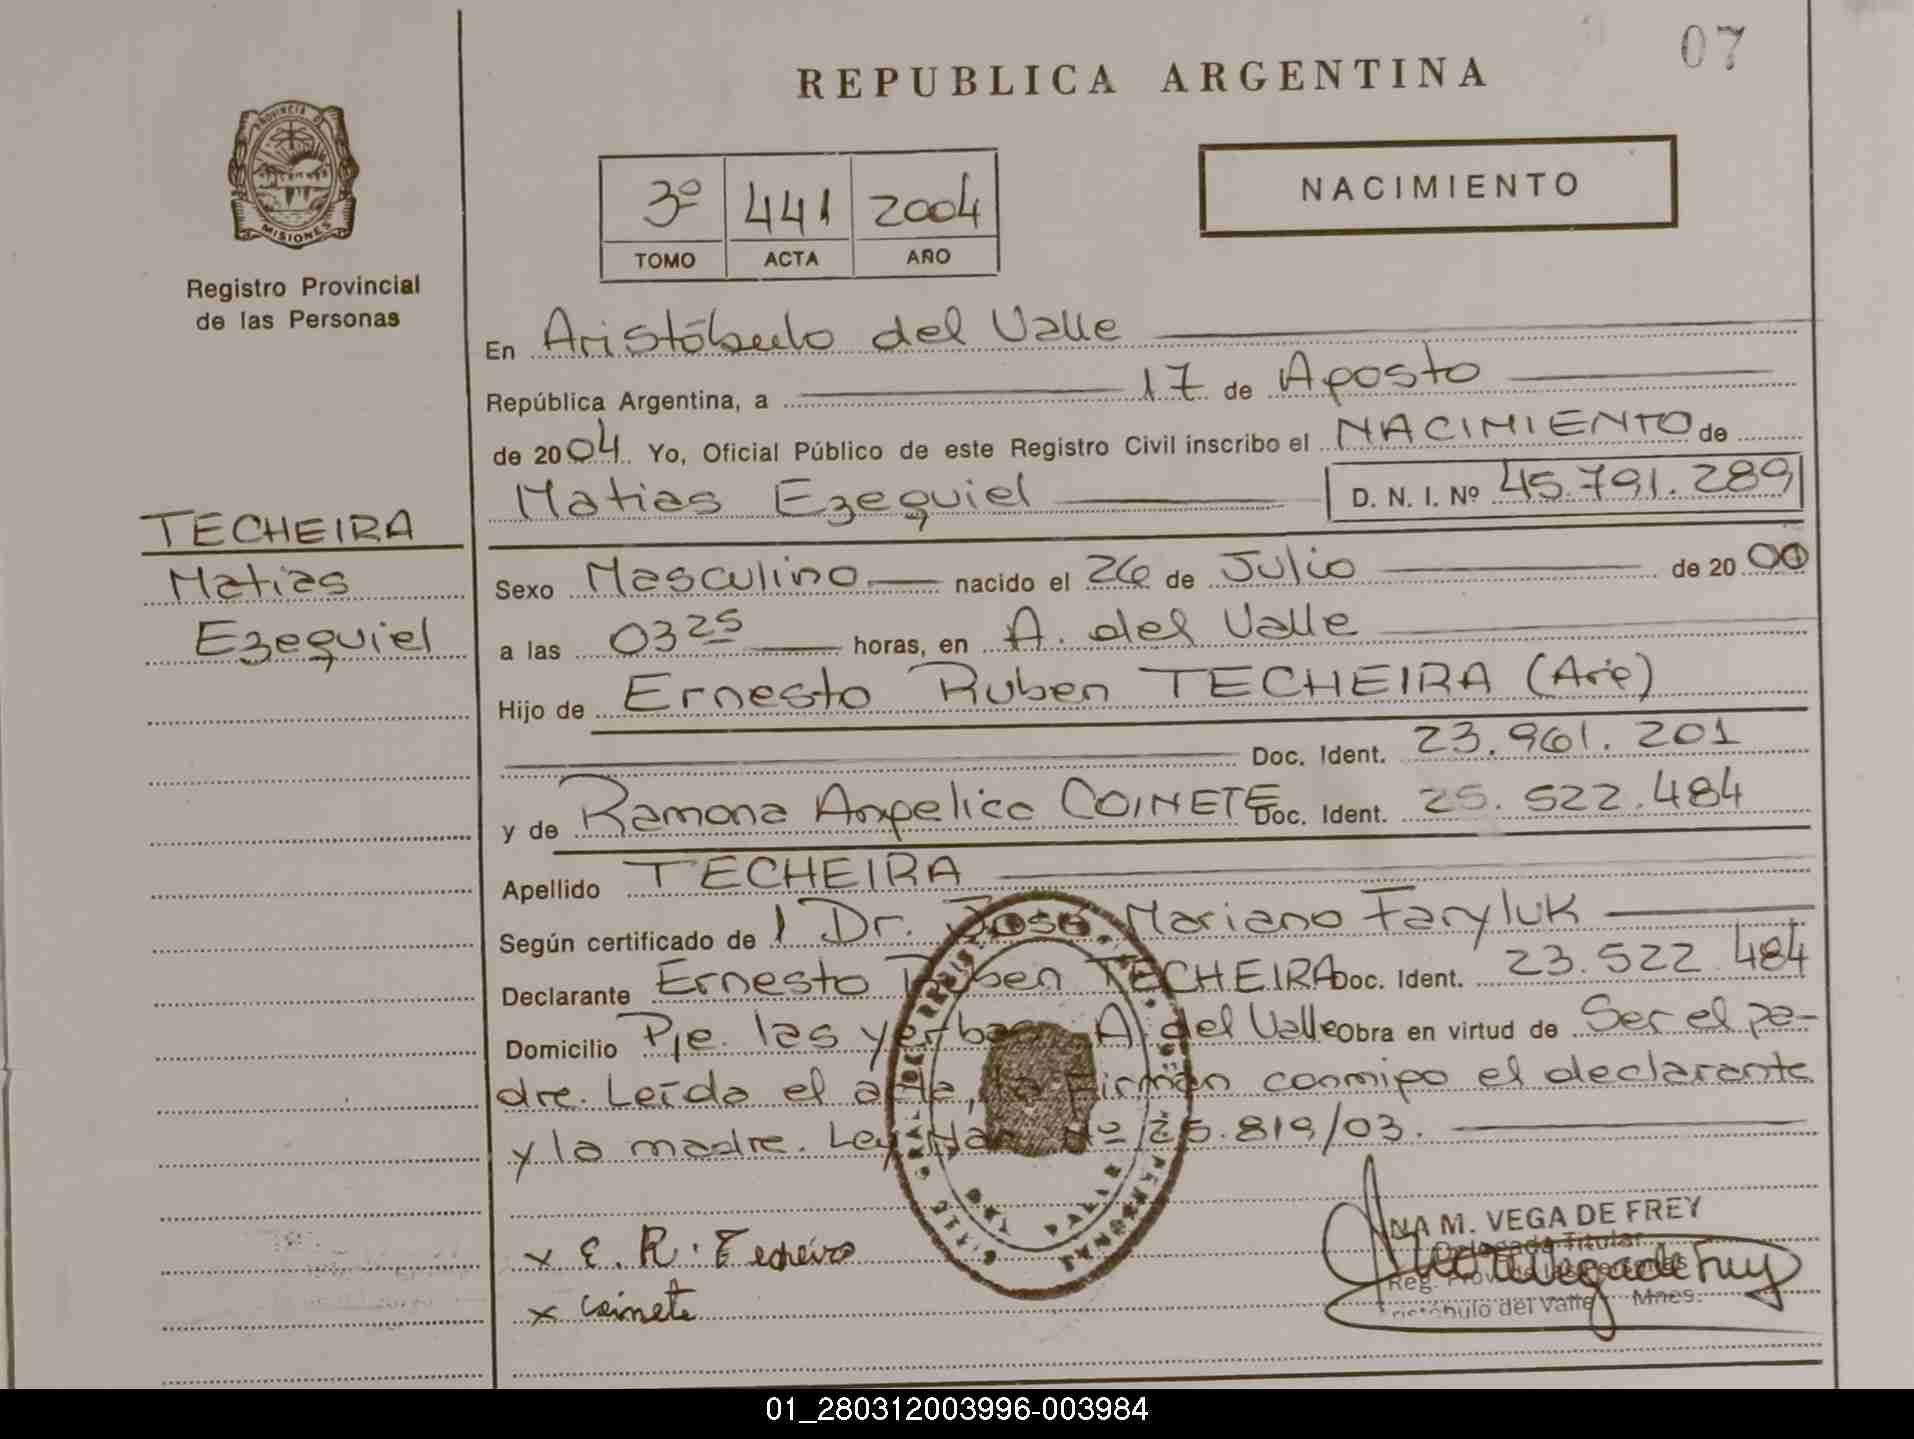 07
REPUBLICA ARGENTINA
PROVINCIA DE
MISIONES
Registro Provincial
de las Personas
3º 441 2004
TOMO ACTA AÑO
NACIMIENTO
En Aristóbulo del Valle
República Argentina, a 17 de Agosto
de 2004 Yo, Oficial Público de este Registro Civil inscribo el NACIMIENTO de
Matias Ezequiel D. N. I. Nº 45.791.289
TECHEIRA
Matias
Ezequiel
Sexo Masculino nacido el 26 de Julio de 2000
a las 03 25 horas, en A. del Valle
Hijo de Ernesto Ruben TECHEIRA (Arg)
Doc. Ident. 23.961.201
y de Ramona Angelica COINETE Doc. Ident. 25.522.484
Apellido TECHEIRA
Según certificado de Dr. José Mariano Faryluk
Declarante Ernesto Ruben TECHEIRA Doc. Ident. 23.522.484
Domicilio Pje. las yerbas A. del Valle Obra en virtud de Ser el pa-
dre. Leída el acta, la firman conmigo el declarante
y la madre. Ley Nac Nº 25.819/03.
x E. R. Techeira
x Coinete
ANA M. VEGA DE FREY
Delegada Titular
Reg. Prov. de las Personas
Aristóbulo del Valle Mnes.
01_280312003996-003984